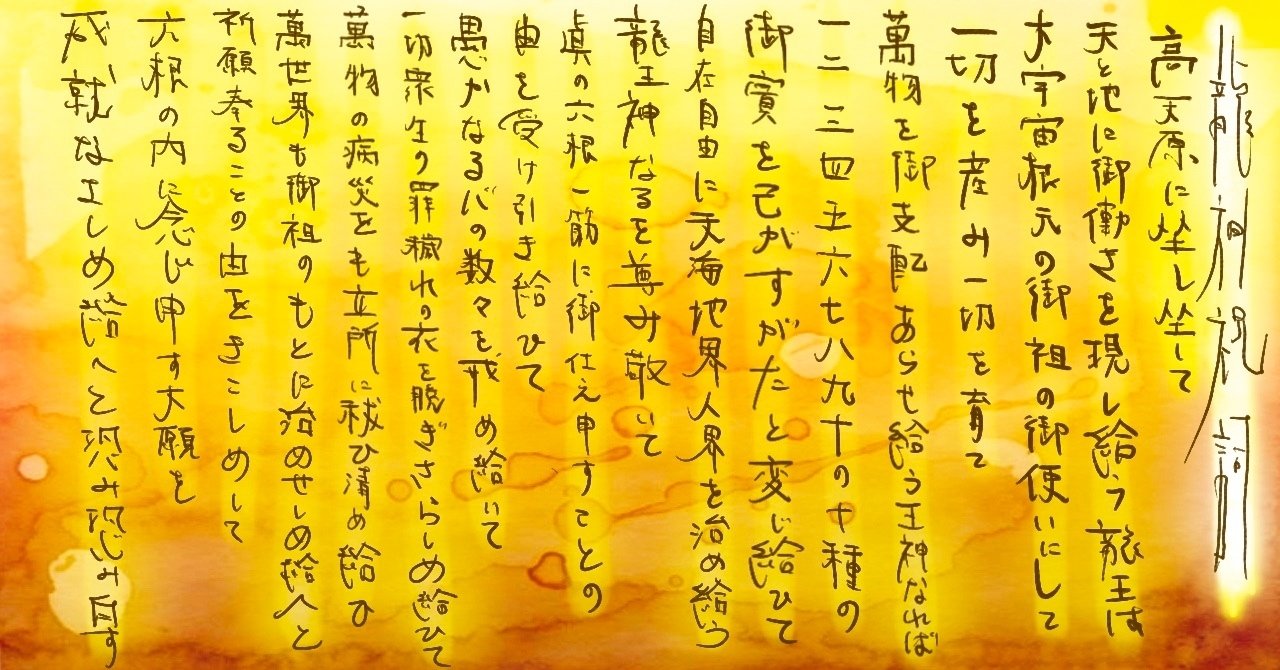 龍神祝詞
高天原に坐し坐して
天と地に御働きを現し給う龍王は
大宇宙根元の御祖の御使いにして
一切を産み一切を育て
萬物を御支配あらせ給う王神なれば
一二三四五六七八九十の十種の
御寳を己がすがたと変じ給ひて
自在自由に天海地界人界を治め給う
龍王神なるを尊み敬いて
眞の六根一筋に御仕え申すことの
由を受け引き給ひて
愚かなる心の数々を戒め給いて
一切衆生の罪穢れの衣を脱ぎさらしめ給ひて
萬物の病災をも立所に祓ひ清め給ひ
萬世界も御祖のもとに治めせしめ給へと
祈願奉ることの由をきこしめして
六根の内に念じ申す大願を
成就なさしめ給へと恐み恐み白す